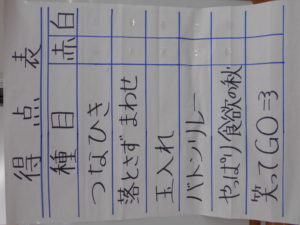 得点表
種目 赤 白
つなひき
落とさず まわせ
玉入れ
バトンリレー
やっぱり食欲の秋
笑ってGO=3